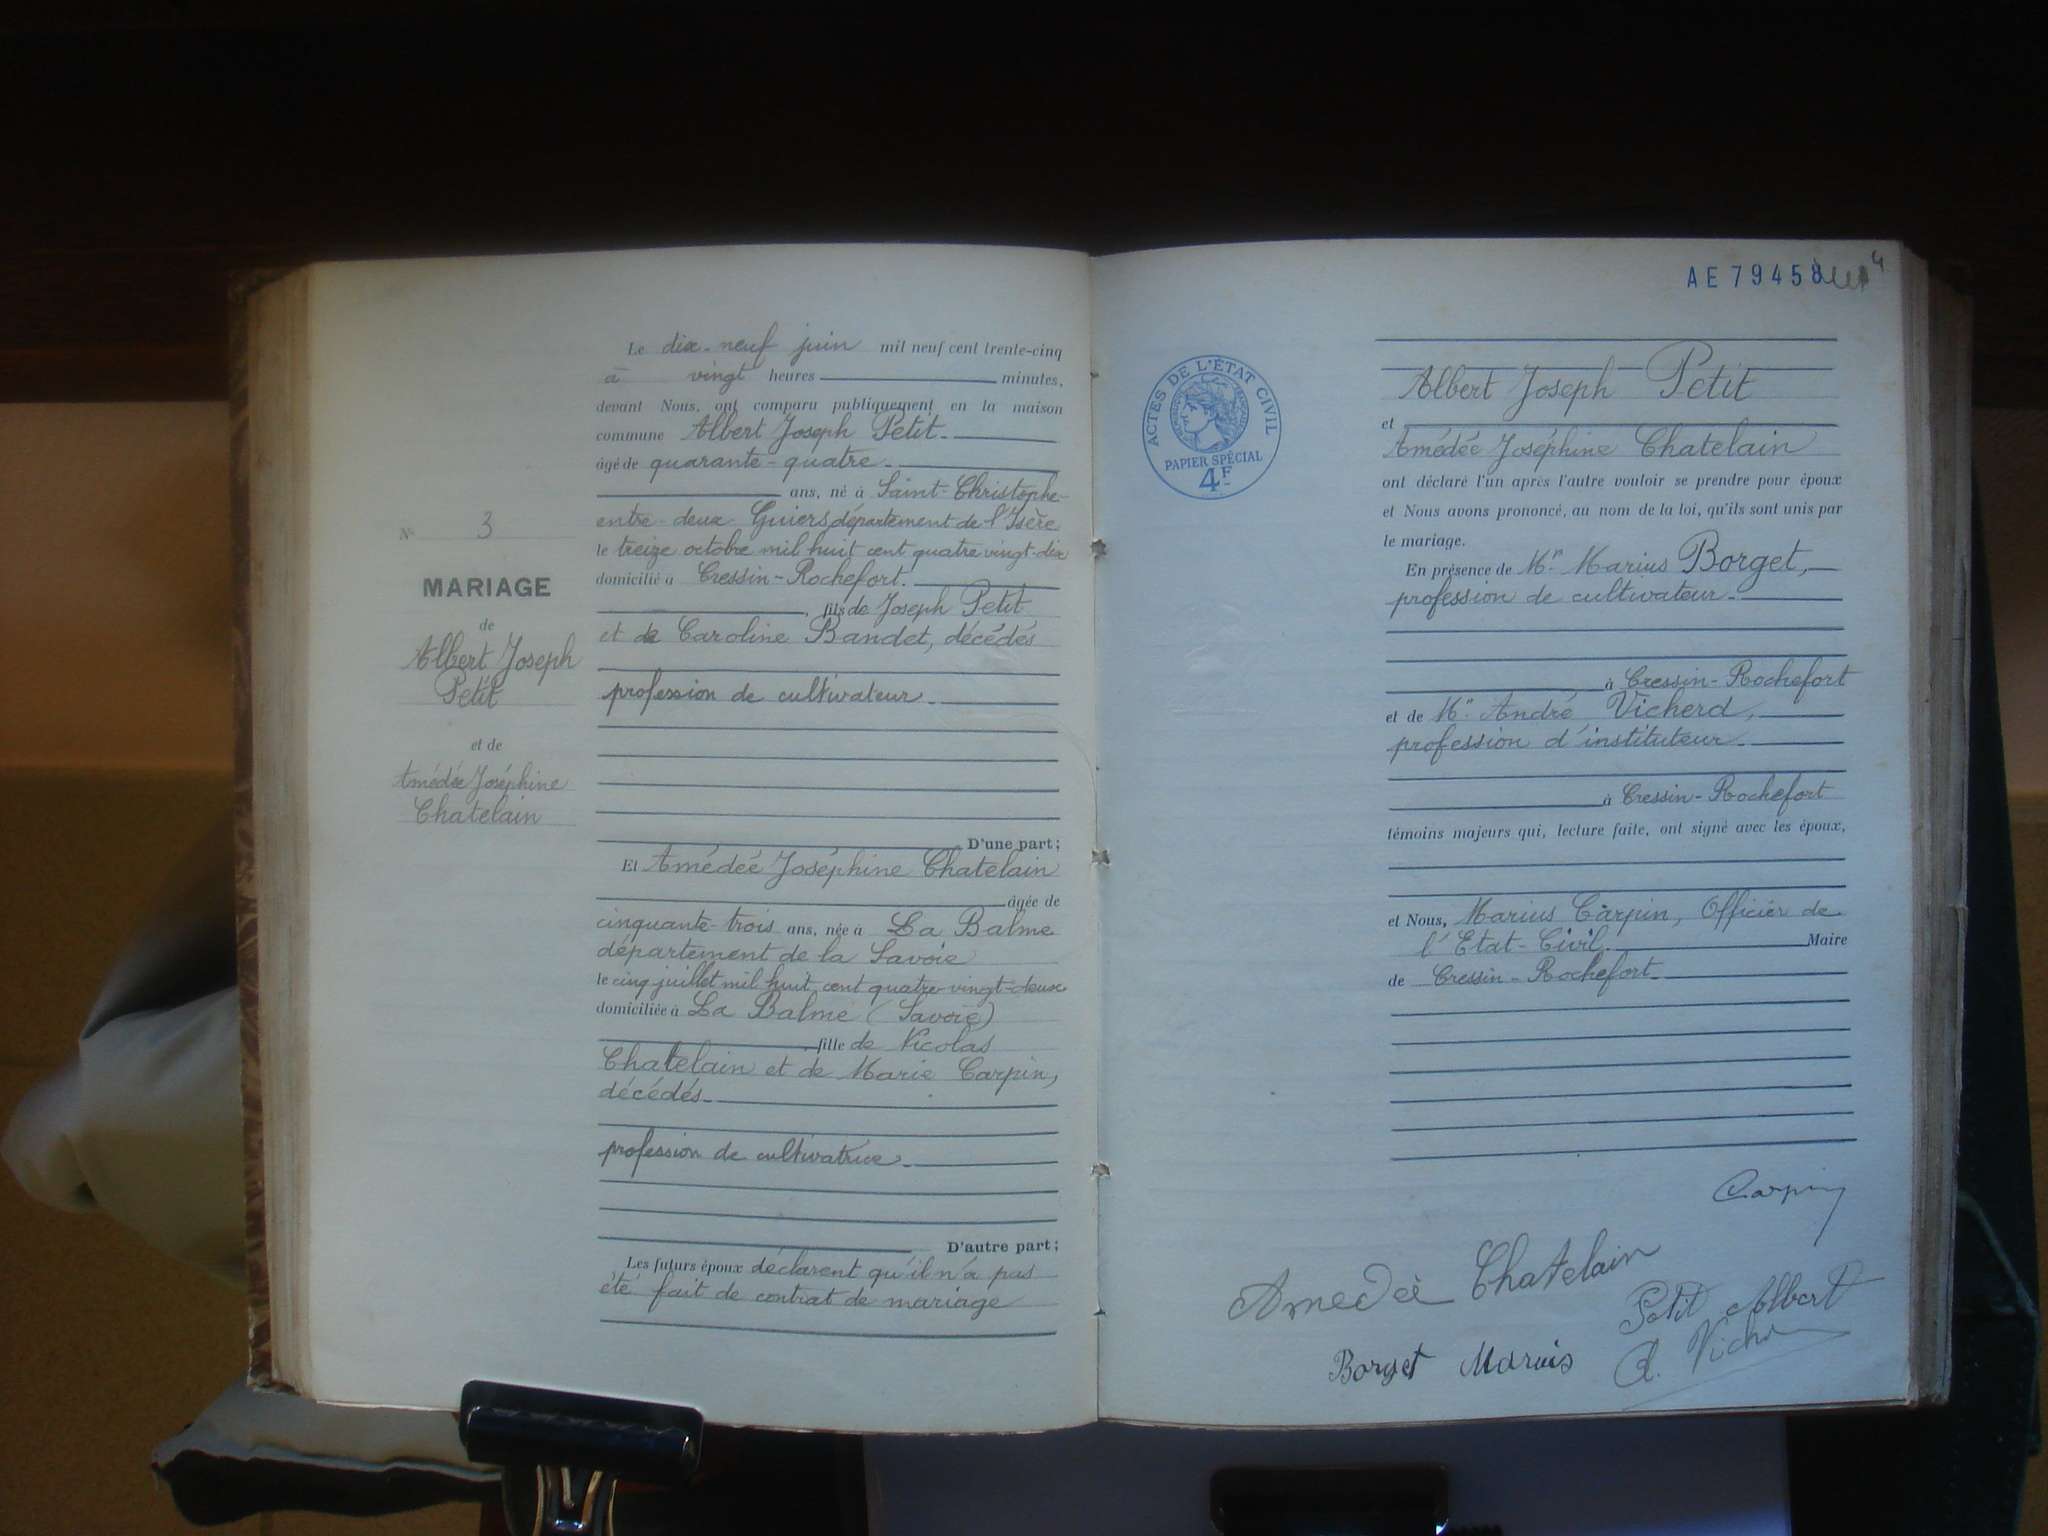 Le dix-neuf juin mil neuf cent trente-cinq
à vingt heures minutes,
devant Nous, ont comparu publiquement en la maison
commune Albert Joseph Petit
âgé de quarante-quatre
ans, né à Saint-Christophe-
entre-deux-Guiers, département de l'Isère
le treize octobre mil huit cent quatre vingt-dix
domicilié à Cressin-Rochefort.
, fils de Joseph Petit
et de Caroline Bandet, décédés
profession de cultivateur
D'une part;
Et Amédée Joséphine Chatelain
âgée de
cinquante-trois ans, née à La Balme
département de la Savoie
le cinq juillet mil huit cent quatre-vingt-deux
domiciliée à La Balme (Savoie)
, fille de Nicolas
Chatelain et de Marie Carpin,
décédés
profession de cultivatrice
D'autre part;
Les futurs époux déclarent qu'il n'a pas
été fait de contrat de mariage
N° 3
MARIAGE
de
Albert Joseph
Petit
et de
Amédée Joséphine
Chatelain
AE 79458
ACTES DE L'ÉTAT CIVIL
PAPIER SPÉCIAL
4F
Albert Joseph Petit
et
Amédée Joséphine Chatelain
ont déclaré l'un après l'autre vouloir se prendre pour époux
et Nous avons prononcé, au nom de la loi, qu'ils sont unis par
le mariage.
En présence de Mr Marius Borget,
profession de cultivateur
à Cressin-Rochefort
et de Mr André Vicherd,
profession d'instituteur
à Cressin-Rochefort
témoins majeurs qui, lecture faite, ont signé avec les époux,
et Nous, Marius Carpin, Officier de
l'Etat-Civil. Maire
de Cressin-Rochefort
Carpin
Amedeé Chatelain
Petit Albert
Borget Marius